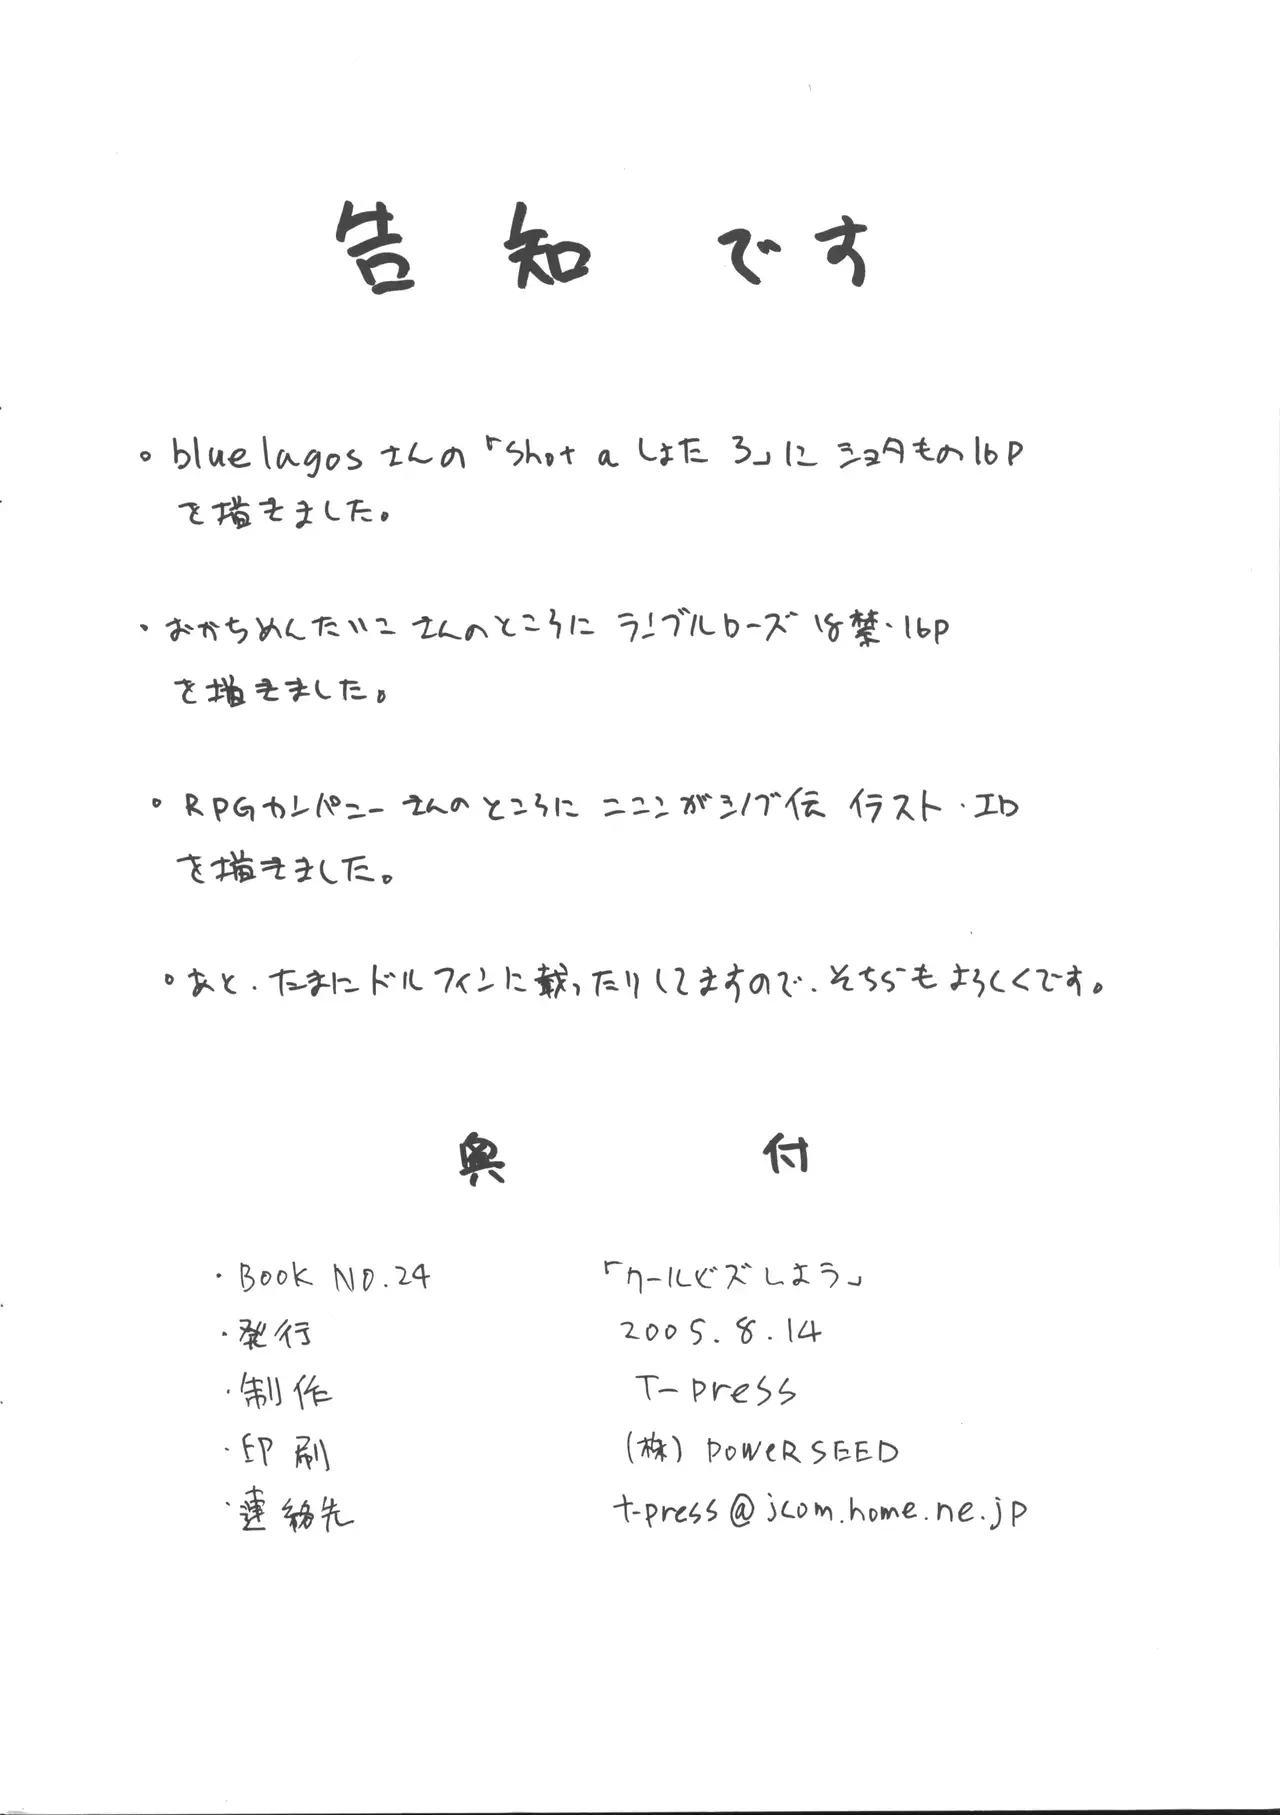 告知です
。bluelagosさんの「Shot a しょた 3」にショタもの16P
を描きました。
・おかちめんたいこさんのところにランブルローズ18禁・16P
を描きました。
。RPGカンパニーさんのところにニニンがシノブ伝 イラスト・エロ
を描きました。
。あと、たまにドルフィンに載ったりしてますので、そちらもよろしくです。
奥付
・BOOK NO.24 「クールビズしよう」
・発行 2005.8.14
・制作 T-press
・印刷 (株) POWER SEED
・連絡先 t-press@jcom.home.ne.jp